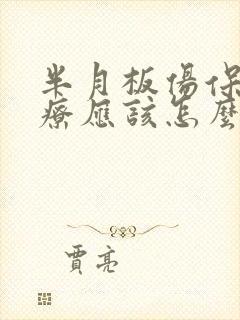 半月板傷保
療應該怎麼
賈亮